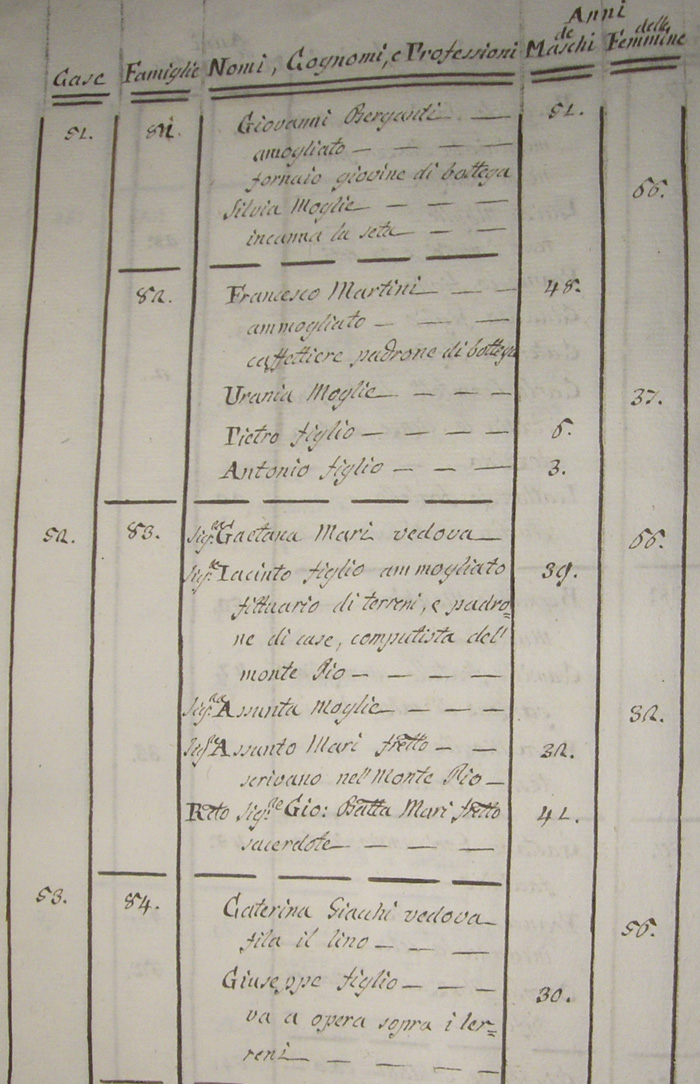 Anni
Case Famiglie Nomi, Cognomi, e Professioni de Maschi delle Femmine
51. 81. Giovanni Bergardi 51.
amogliato
fornaio giovine di bottega
Silvia Moglie 66.
incanna la seta
82. Francesco Martini 48.
ammogliato
caffettiere padrone di bottega
Urania Moglie 37.
Pietro figlio 6.
Antonio figlio 3.
52. 83. Sig.ra Gaetana Mari vedova 66.
Sig.re Iacinto figlio ammogliato 39.
fittuario di terreni, e padro=
ne di case, computista del
monte Pio
Sig.ra Assunta Moglie 32.
Sig.re Assunto Mari frello 32.
scrivano nel Monte Pio
Rdo Sig.re Gio: Batta Mari frello 41.
sacerdote
53. 84. Caterina Giacchi vedova 56.
fila il lino
Giuseppe figlio 30.
va a opera sopra i ter=
reni